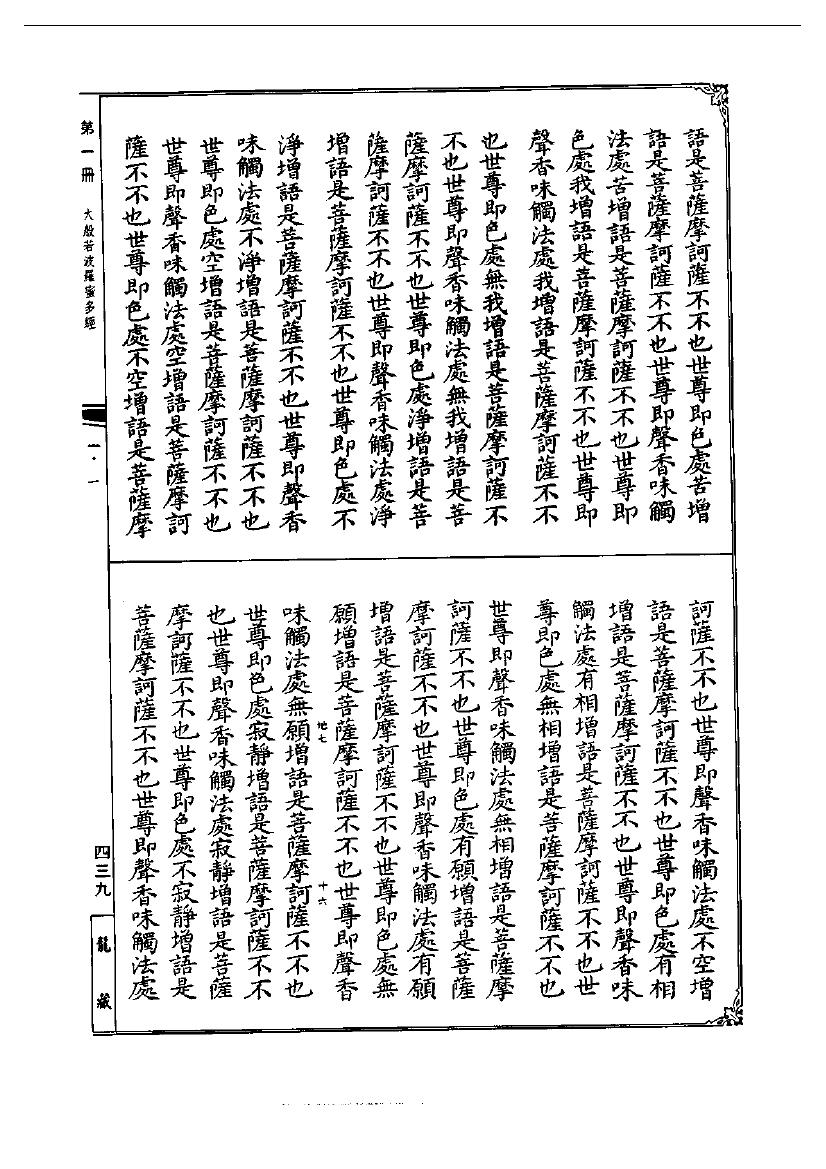 語是菩薩摩訶薩不不也世尊即色處苦增
語是菩薩摩訶薩不不也世尊即聲香味觸
法處苦增語是菩薩摩訶薩不不也世尊即
色處我增語是菩薩摩訶薩不不也世尊即
聲香味觸法處我增語是菩薩摩訶薩不不
也世尊即色處無我增語是菩薩摩訶薩不
不也世尊即聲香味觸法處無我增語是菩
薩摩訶薩不不也世尊即色處淨增語是菩
薩摩訶薩不不也世尊即聲香味觸法處淨
增語是菩薩摩訶薩不不也世尊即色處不
淨增語是菩薩摩訶薩不不也世尊即聲香
味觸法處不淨增語是菩薩摩訶薩不不也
世尊即色處空增語是菩薩摩訶薩不不也
世尊即聲香味觸法處空增語是菩薩摩訶
薩不不也世尊即色處不空增語是菩薩摩
訶薩不不也世尊即聲香味觸法處不空增
語是菩薩摩訶薩不不也世尊即色處有相
增語是菩薩摩訶薩不不也世尊即聲香味
觸法處有相增語是菩薩摩訶薩不不也世
尊即色處無相增語是菩薩摩訶薩不不也
世尊即聲香味觸法處無相增語是菩薩摩
訶薩不不也世尊即色處有願增語是菩薩
摩訶薩不不也世尊即聲香味觸法處有願
增語是菩薩摩訶薩不不也世尊即色處無
願增語是菩薩摩訶薩不不也世尊即聲香
地七 十六
味觸法處無願增語是菩薩摩訶薩不不也
世尊即色處寂靜增語是菩薩摩訶薩不不
也世尊即聲香味觸法處寂靜增語是菩薩
摩訶薩不不也世尊即色處不寂靜增語是
菩薩摩訶薩不不也世尊即聲香味觸法處
第一冊 大般若波羅蜜多經
一·一
四三九
龍藏